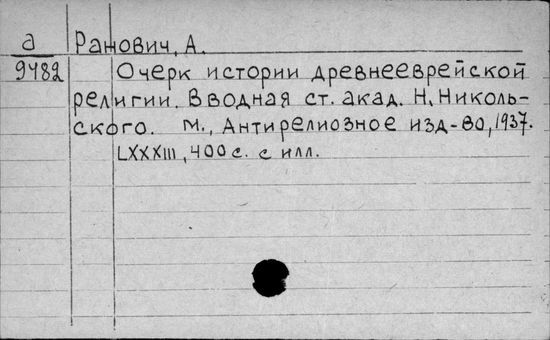 а Ранович, А.
9482 Очерк истории древнееврейской
религии. Вводная ст. акад. Н. Николь-
ского. М., Антирелиозное изд-во, 1937.
LXXXIII, 400 с. с илл.